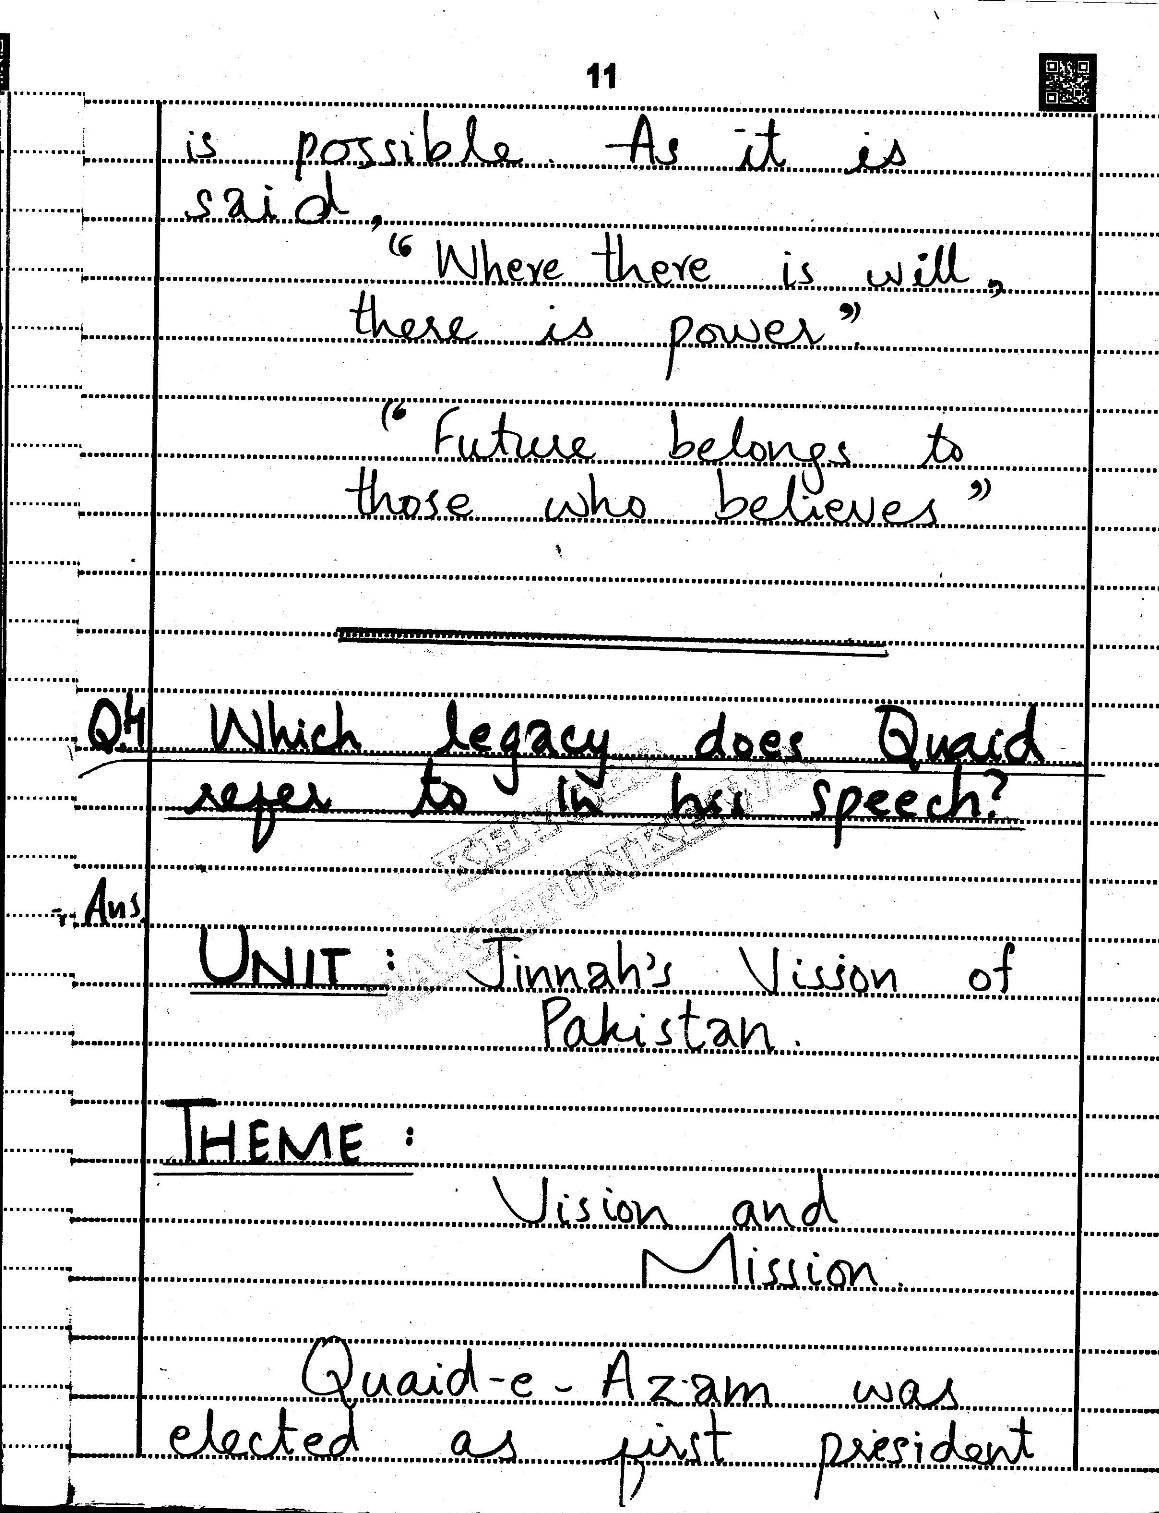 11
is possible. As it is
said,
"Where there is will,
there is power".
"Future belongs to
those who believes"
Q.4 Which legacy does Quaid
refer to in his speech?
KHYBER
PAKHTUNKHWA
Ans.
UNIT: Jinnah's Vission of
Pakistan.
THEME:
Vision and
Mission.
Quaid-e-Azam was
elected as first president